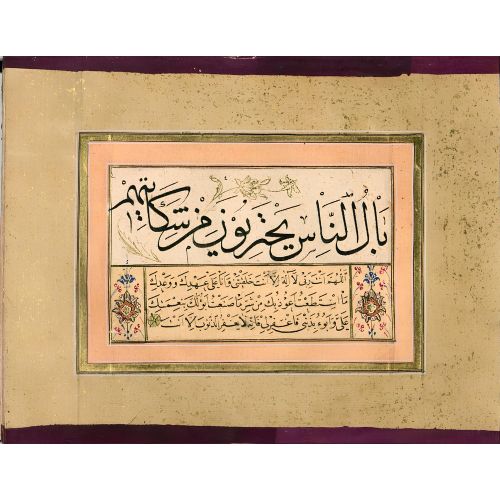 بَالُ النَّاسِ من
اللهم انت ربي لا اله الا انت خلقتني وانا على عهدك ووعدك
ما استطعت اعوذ بك من شر ما صنعت ابوء لك بنعمتك
علي وابوء بذنبي فاغفر لي فانه لا يغفر الذنوب الا انت